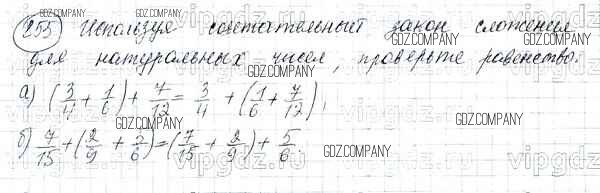 255 Используя сочетательный закон сложения
для натуральных чисел, проверьте равенство:
а) (3/4 + 1/6) + 7/12 = 3/4 + (1/6 + 7/12);
б) 7/15 + (2/9 + 5/6) = (7/15 + 2/9) + 5/6.
GDZ.COMPANY
GDZ.COMPANY
GDZ.COMPANY
GDZ.COMPANY
GDZ.COMPANY
GDZ.COMPANY
GDZ.COMPANY
vipgdz.ru
vipgdz.ru
vipgdz.ru